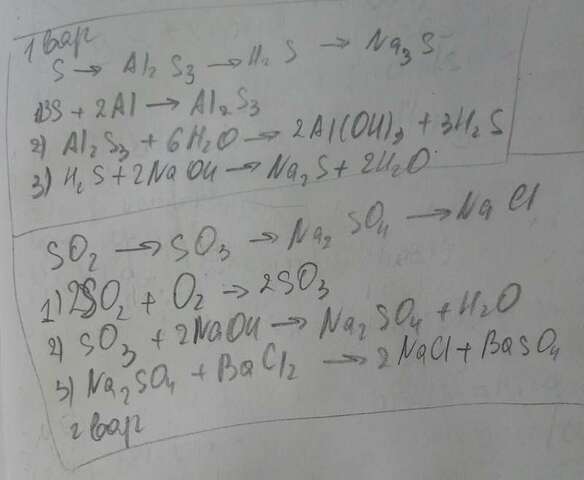 1 вар
S → Al₂ S₃ → H₂ S → Na₃ S
1) 3S + 2Al → Al₂S₃
2) Al₂S₃ + 6H₂O → 2Al(OH)₃ + 3H₂S
3) H₂S + 2NaOH → Na₂S + 2H₂O
SO₂ → SO₃ → Na₂ SO₄ → NaCl
1) 2SO₂ + O₂ → 2SO₃
2) SO₃ + 2NaOH → Na₂SO₄ + H₂O
3) Na₂SO₄ + BaCl₂ → 2NaCl + BaSO₄
2 вар